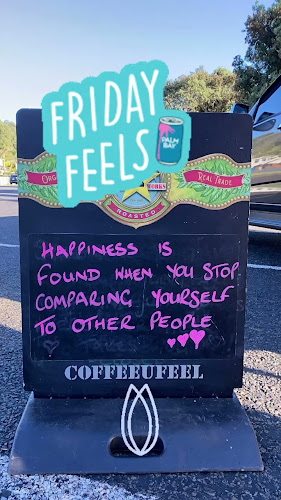 FRIDAY
FEELS
PALM
BAY
REAL TRADE
WORKS
ROASTED
HAPPINESS IS
FOUND WHEN YOU STOP
COMPARING YOURSELF
TO OTHER PEOPLE
COFFEEUFEEL